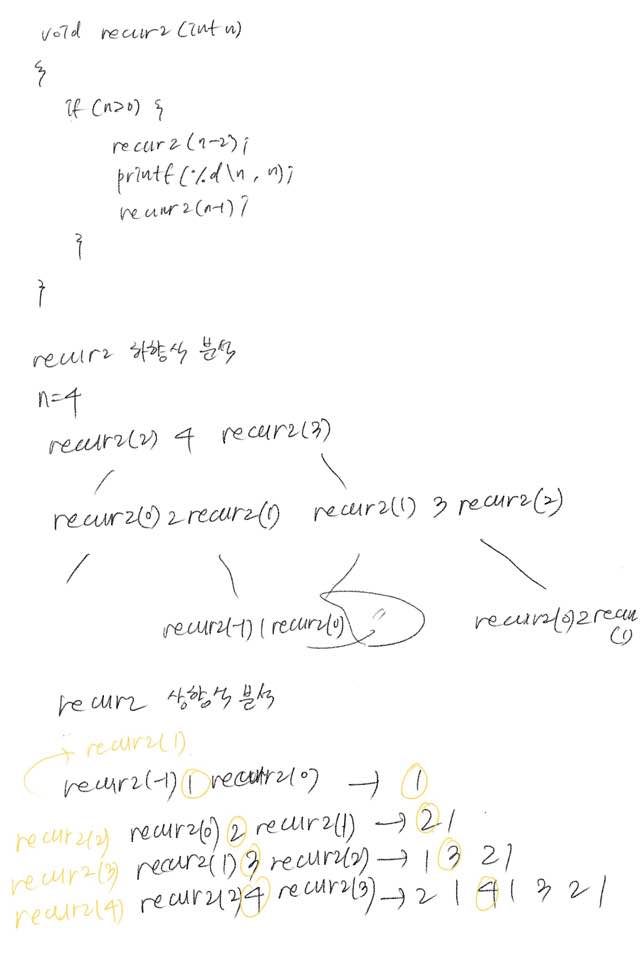 void recur2(int n)
{
if (n>0) {
recur2(n-2);
printf(%d\n, n);
recur2(n-1);
}
}
recur2 하향식 분석
n=4
recur2(2) 4 recur2(3)
recur2(0) 2 recur2(1) recur2(1) 3 recur2(2)
recur2(-1) 1 recur2(0) " recur2(0) 2 recur
(1)
recur2 상향식 분석
recur2(1)
recur2(-1) 1 recur2(0) → 1
recur2(2) recur2(0) 2 recur2(1) → 2 1
recur2(3) recur2(1) 3 recur2(2) → 1 3 2 1
recur2(4) recur2(2) 4 recur2(3) → 2 1 4 1 3 2 1